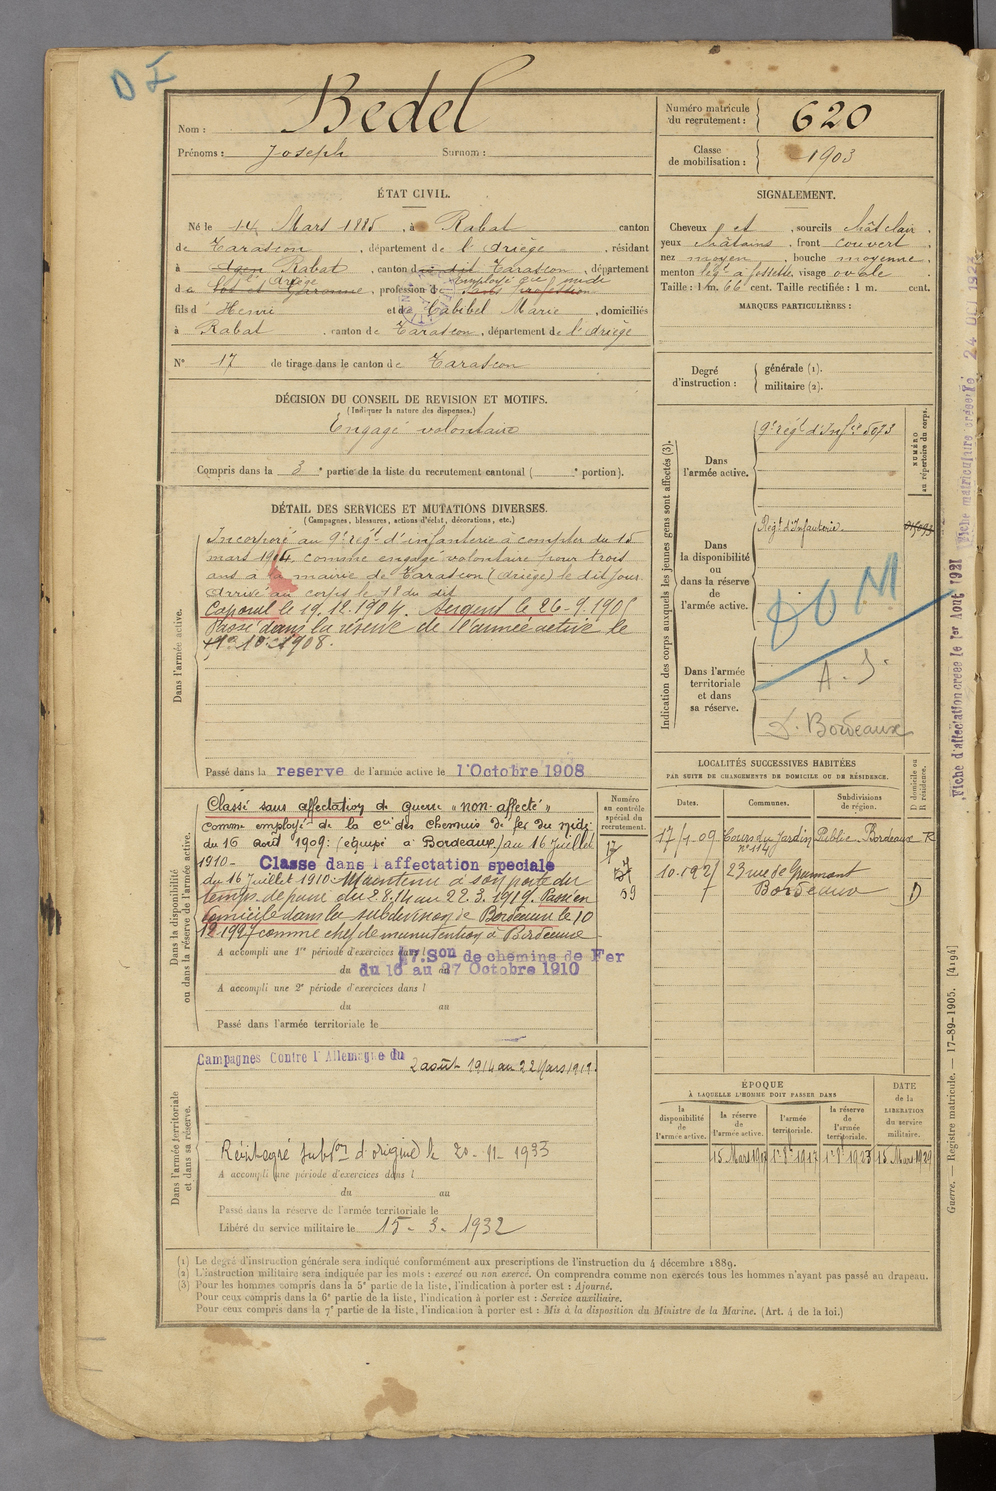 D I
Nom : Bedel
Prénoms : Joseph Surnom :
Numéro matricule du recrutement : 620
Classe de mobilisation : 1903
ÉTAT CIVIL.
Né le 14 Mars 1885, à Rabat canton
de Tarascon, département de l'Ariège, résidant
à Agen Rabat, canton du dit Tarascon, département
d Ariège Lot et Garonne, profession d employé Cie midi sans profession
fils d' Henri et de Cabibel Marie, domiciliés
à Rabat, canton de Tarascon, département de l'Ariège
N° 17 de tirage dans le canton de Tarascon
SIGNALEMENT.
Cheveux et, sourcils chât clair,
yeux châtains, front couvert
nez moyen, bouche moyenne,
menton lég. à fossette, visage ovale
Taille : 1 m. 66 cent. Taille rectifiée : 1 m. cent.
MARQUES PARTICULIÈRES :
Degré d'instruction : générale (1).
militaire (2).
DÉCISION DU CONSEIL DE REVISION ET MOTIFS.
(Indiquer la nature des dispenses.)
Engagé volontaire
Compris dans la 3e partie de la liste du recrutement cantonal ( e portion).
DÉTAIL DES SERVICES ET MUTATIONS DIVERSES.
(Campagnes, blessures, actions d'éclat, décorations, etc.)
Dans l'armée active.
Incorporé au 9e régt d'infanterie à compter du 15
mars 1904, comme engagé volontaire pour trois
ans à la mairie de Tarascon (Ariège) le dit jour
Arrivé au corps le 18 du dit
Caporal le 19.12.1904. Sergent le 26-9-1905
Passé dans la réserve de l'armée active le
1908.
Passé dans la reserve de l'armée active le 1'Octobre 1908
Indication des corps auxquels les jeunes gens sont affectés (3).
NUMÉRO au répertoire du corps.
Dans l'armée active.
9e régt d'Infie 5073
Dans la disponibilité ou dans la réserve de l'armée active.
Régt d'Infanterie.
DOM
Dans l'armée territoriale et dans sa réserve.
A. S.
S. Bordeaux
Dans la disponibilité ou dans la réserve de l'armée active.
Classé sans affectation de guerre "non-affecté"
comme employé de la Cie des chemins de fer du midi
du 16 août 1909: (équipé à Bordeaux) au 16 Juillet
1910 - Classe dans l'affectation speciale
du 16 Juillet 1910. Maintenu à son poste du
temps de paix du 2.8.14 au 22.3.1919. Passé en
domicile dans la subdivision de Bordeaux le 10
12.1927 comme chef de manutention à Bordeaux
A accompli une 1re période d'exercices dans l 17. Son de chemins de Fer
du 16 au 27 Octobre 1910
A accompli une 2e période d'exercices dans l
du au
Passé dans l'armée territoriale le
Numéro au contrôle spécial du recrutement.
39
LOCALITÉS SUCCESSIVES HABITÉES
PAR SUITE DE CHANGEMENTS DE DOMICILE OU DE RÉSIDENCE.
Dates. Communes. Subdivisions de région. D domicile ou R résidence.
17/1-09 Cours du Jardin Public Bordeaux R
n° 114
10-12-27 23 rue de Grammont
Bordeaux D
Dans l'armée territoriale et dans sa réserve.
Campagnes Contre l'Allemagne du
2 août 1914 au 22 Mars 1919.
Réintégré Subon d'origine le 20-11-1933
A accompli une période d'exercices dans l
du au
Passé dans la réserve de l'armée territoriale le
Libéré du service militaire le 15-3-1932
ÉPOQUE
À LAQUELLE L'HOMME DOIT PASSER DANS
la disponibilité de l'armée active. la réserve de l'armée active. l'armée territoriale. la réserve de l'armée territoriale.
DATE de la LIBÉRATION du service militaire.
15 Mars 1907 1er 8bre 1917 1er 8bre 1923 15 Mars 1929
(1) Le degré d'instruction générale sera indiqué conformément aux prescriptions de l'instruction du 4 décembre 1889.
(2) L'instruction militaire sera indiquée par les mots : exercé ou non exercé. On comprendra comme non exercés tous les hommes n'ayant pas passé au drapeau.
(3) Pour les hommes compris dans la 5e partie de la liste, l'indication à porter est : Ajourné.
Pour ceux compris dans la 6e partie de la liste, l'indication à porter est : Service auxiliaire.
Pour ceux compris dans la 7e partie de la liste, l'indication à porter est : Mis à la disposition du Ministre de la Marine. (Art. 4 de la loi.)
Guerre. — Registre matricule. — 17-89-1905. [4194]
Fiche d'affectation créée le 1er Août 1921
Fiche matriculaire créée le 24 OCT 192